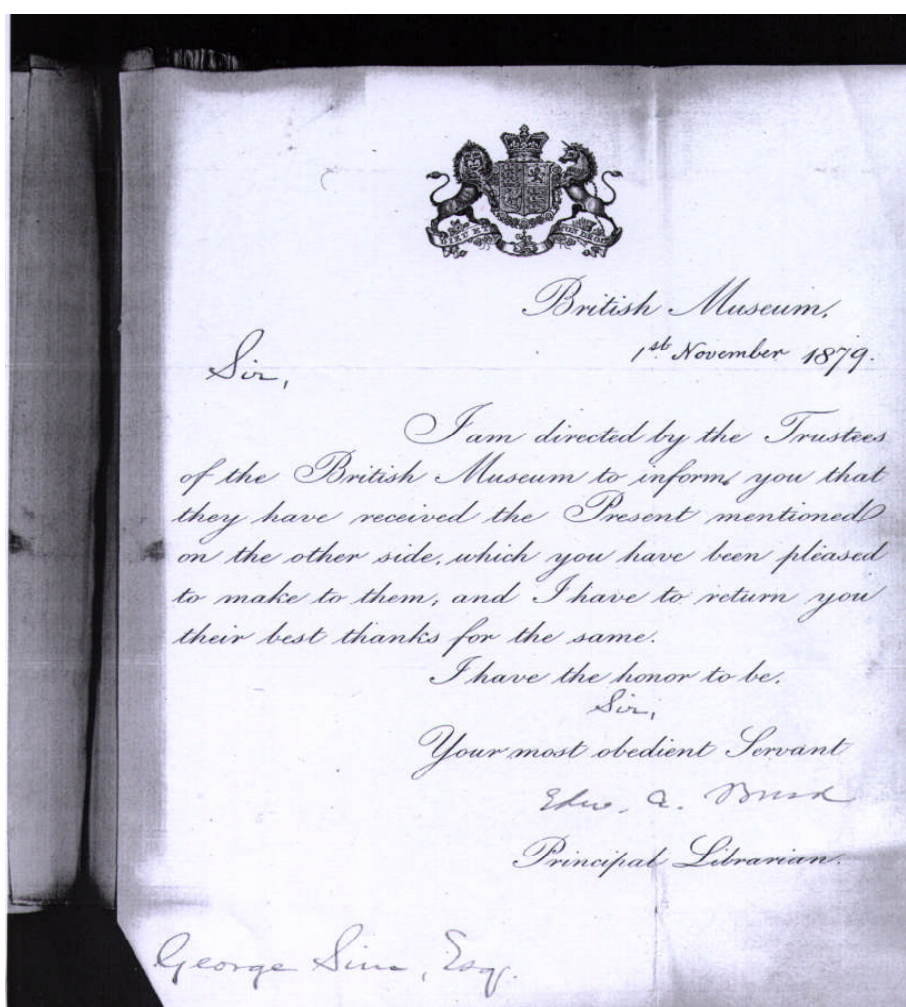 DIEU ET MON DROIT
British Museum,
1st November 1879.
Sir,
I am directed by the Trustees
of the British Museum to inform you that
they have received the Present mentioned
on the other side, which you have been pleased
to make to them, and I have to return you
their best thanks for the same.
I have the honor to be,
Sir,
Your most obedient Servant
Edw. A. Bond
Principal Librarian.
George Sim, Esq.